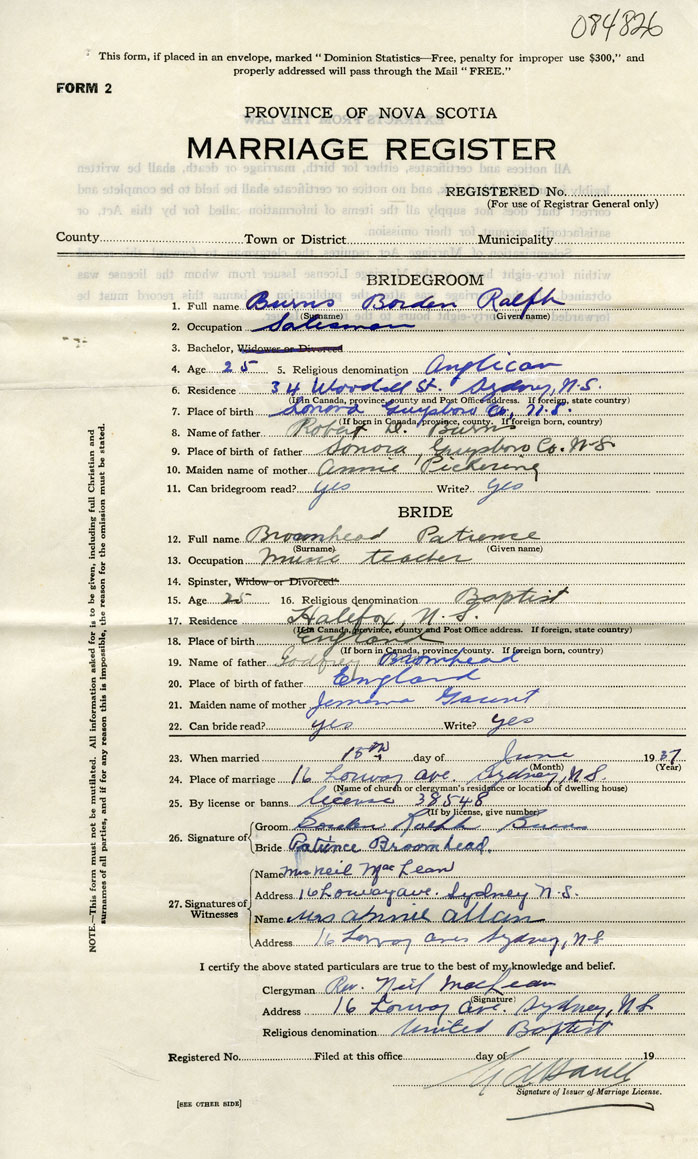 084826
This form, if placed in an envelope, marked "Dominion Statistics—Free, penalty for improper use $300," and
properly addressed will pass through the Mail "FREE."
FORM 2
PROVINCE OF NOVA SCOTIA
MARRIAGE REGISTER
REGISTERED No.
(For use of Registrar General only)
County Town or District Municipality
BRIDEGROOM
1. Full name Burns Borden Ralph
(Surname) (Given name)
2. Occupation Salesman
3. Bachelor, Widower or Divorced
4. Age 25 5. Religious denomination Anglican
6. Residence 34 Woodill St. Sydney, N.S.
(If in Canada, province, county and Post Office address. If foreign, state country)
7. Place of birth Sonora Guysboro Co, N.S.
(If born in Canada, province, county. If foreign born, country)
8. Name of father Robert D. Burns
9. Place of birth of father Sonora, Guysboro Co. N.S
10. Maiden name of mother Annie Pickering
11. Can bridegroom read? yes Write? yes
BRIDE
12. Full name Broomhead Patience
(Surname) (Given name)
13. Occupation Music teacher
14. Spinster, Widow or Divorced
15. Age 25 16. Religious denomination Baptist
17. Residence Halifox, N.S.
(If in Canada, province, county and Post Office address. If foreign, state country)
18. Place of birth England
(If born in Canada, province, county. If foreign born, country)
19. Name of father Godfrey Bromhead
20. Place of birth of father England
21. Maiden name of mother Jemima Gaunt
22. Can bride read? yes Write? yes
23. When married 15th day of June 1937
(Month) (Year)
24. Place of marriage 16 Lorway ave. Sydney, N.S.
(Name of church or clergyman's residence or location of dwelling house)
25. By license or banns license 38548
(If by license, give number)
26. Signature of
Groom Borden Ralph Burns
Bride Patience Broomhead.
27. Signatures of Witnesses
Name Mrs Neil MacLean
Address 16 Lorway ave. Sydney N.S.
Name Mrs Annie Allan
Address 16 Lorway aves Sydney, N.S
I certify the above stated particulars are true to the best of my knowledge and belief.
Clergyman Rev. Neil MacLean
(Signature)
Address 16 Lorway ave. Sydney, N.S
Religious denomination United Baptist
Registered No. Filed at this office day of 19
Signature of Issuer of Marriage License.
[SEE OTHER SIDE]
NOTE.—This form must not be mutilated. All information asked for is to be given, including full Christian and
surnames of all parties, and if for any reason this is impossible, the reason for the omission must be stated.